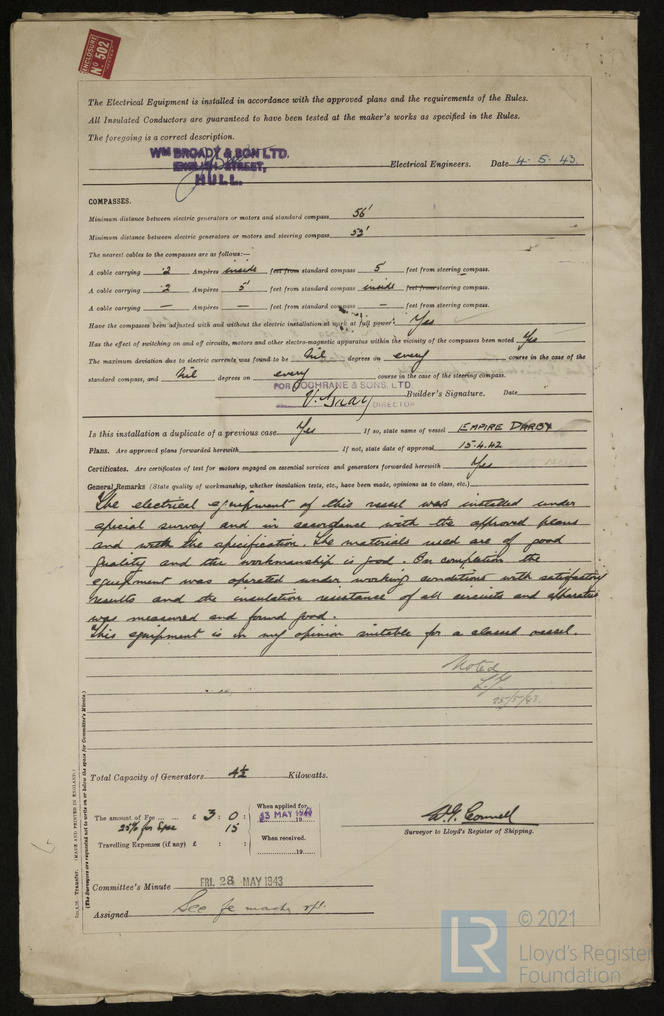 ENCLOSURE
No 502
The Electrical Equipment is installed in accordance with the approved plans and the requirements of the Rules.
All Insulated Conductors are guaranteed to have been tested at the maker's works as specified in the Rules.
The foregoing is a correct description.
WM BROADY & SON LTD.
ENGLISH STREET,
HULL.
Electrical Engineers. Date 4. 5. 43.
COMPASSES.
Minimum distance between electric generators or motors and standard compass 56'
Minimum distance between electric generators or motors and steering compass 53'
The nearest cables to the compasses are as follows:—
A cable carrying .2 Ampères inside feet from standard compass 5 feet from steering compass.
A cable carrying .2 Ampères 5' feet from standard compass inside feet from steering compass.
A cable carrying — Ampères — feet from standard compass — feet from steering compass.
Have the compasses been adjusted with and without the electric installation at work at full power: Yes
Has the effect of switching on and off circuits, motors and other electro-magnetic apparatus within the vicinity of the compasses been noted Yes
The maximum deviation due to electric currents was found to be Nil degrees on every course in the case of the
standard compass, and Nil degrees on every course in the case of the steering compass.
FOR COCHRANE & SONS, LTD.
V. Gray DIRECTOR Builder's Signature. Date
Is this installation a duplicate of a previous case Yes If so, state name of vessel EMPIRE DARBY
Plans. Are approved plans forwarded herewith If not, state date of approval 15.4.42
Certificates. Are certificates of test for motors engaged on essential services and generators forwarded herewith Yes
General Remarks (State quality of workmanship, whether insulation tests, etc., have been made, opinions as to class, etc.)
The electrical equipment of this vessel was installed under
special survey and in accordance with the approved plans
and with the specification. The materials used are of good
quality and the workmanship is good. On completion the
equipment was operated under working conditions with satisfactory
results and the insulation resistance of all circuits and apparatus
was measured and found good.
This equipment is in my opinion suitable for a classed vessel.
Noted
25/5/43.
Total Capacity of Generators 4½ Kilowatts.
The amount of Fee ... ... £ 3 : 0 :
25% for Spec 15
Travelling Expenses (if any) £ : :
When applied for,
13 MAY 1943
19
When received.
19
W. G. Connell
Surveyor to Lloyd's Register of Shipping.
Committee's Minute FRI. 28 MAY 1943
Assigned See Je machy rpt.
Transfer. (MADE AND PRINTED IN ENGLAND.)
(The Surveyors are requested not to write on or below the space for Committee's Minute.)
LR
© 2021
Lloyd's Register
Foundation